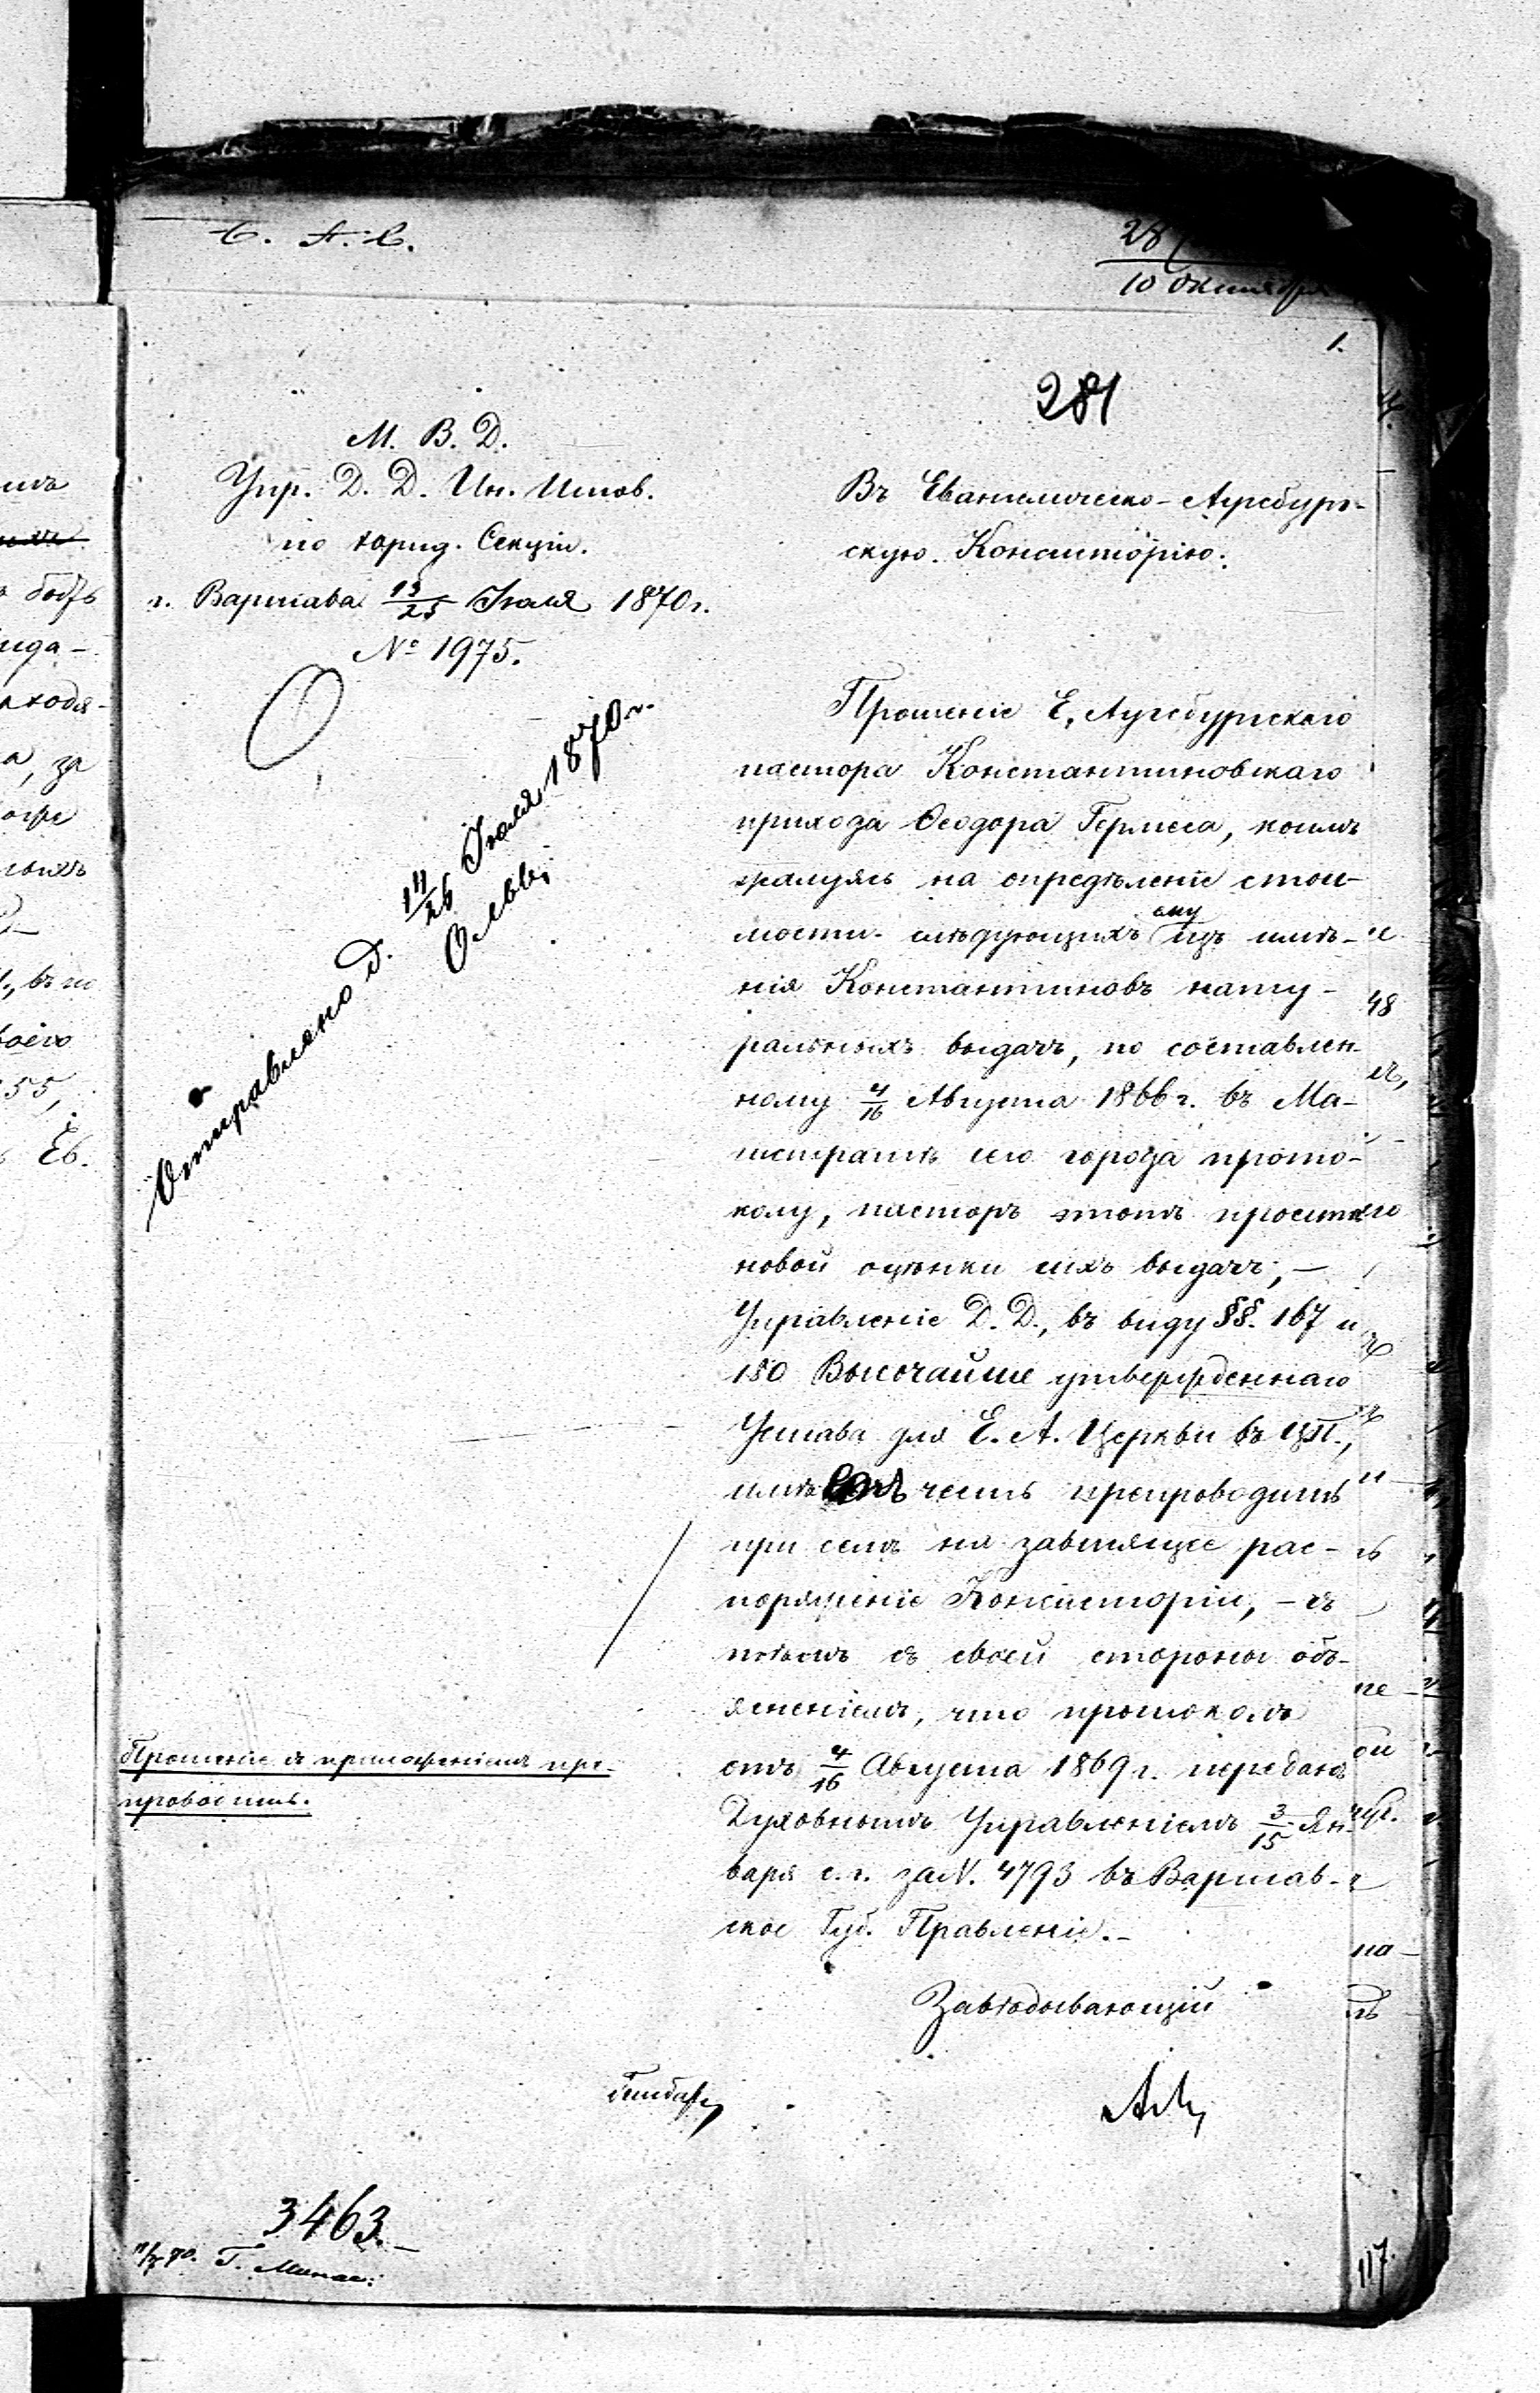 С. А. С.
28
10 Октября
1.
281
М. В. Д.
Упр. Д. Д. Ин. Испов.
по юрид. Секціи.
г. Варшава 13/25 Іюля 1870 г.
№ 1975.
Отправлено д. 14/26 Іюля 1870 г.
Въ Евангелическо-Аугсбург-
скую Консисторію.
Прошеніе Е. Аугсбургскаго
пастора Константиновскаго
прихода Ѳеодора Гермса, коимъ
жалуясь на опредѣленіе стои-
мости слѣдующихъ ему изъ имѣ-
нія Константиновъ нату-
ральныхъ выдачъ, по составлен-
ному 4/16 Августа 1866 г. въ Ма-
гистратѣ сего города прото-
колу, пасторъ этотъ проситъ
новой оцѣнки сихъ выдачъ, —
Управленіе Д. Д., въ виду §§. 167 и
180 Высочайше утвержденнаго
Устава для Е. А. Церкви въ ЦП.,
имѣетъ честь препроводить
при семъ на зависящее рас-
поряженіе Консисторіи, — съ
тѣмъ съ своей стороны объ-
ясненіемъ, что протоколъ
отъ 4/16 Августа 1869 г. переданъ
Духовнымъ Управленіемъ 3/15 Ян-
варя с. г. за N. 4793 въ Варшав-
ское Губ. Правленіе. —
Прошеніе съ приложеніемъ пре-
проводить.
Завѣдывающій
3463. —
117